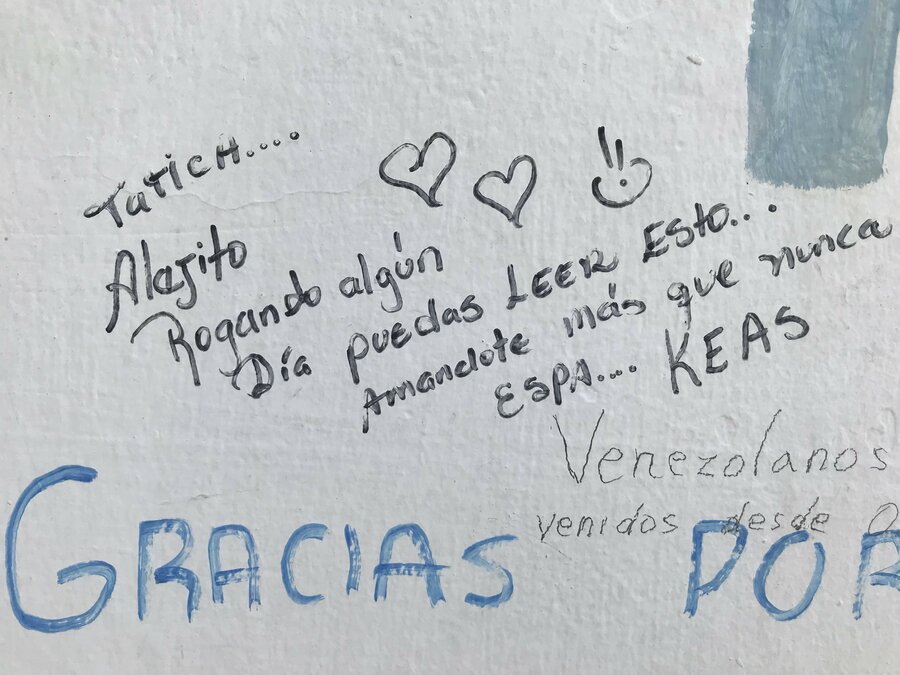 Tatich....
Alejito
Rogando algún
Día puedas LEER Esto...
Amandote más que nunca
ESPA.... KEAS
Venezolanos
venidos desde
GRACIAS POR